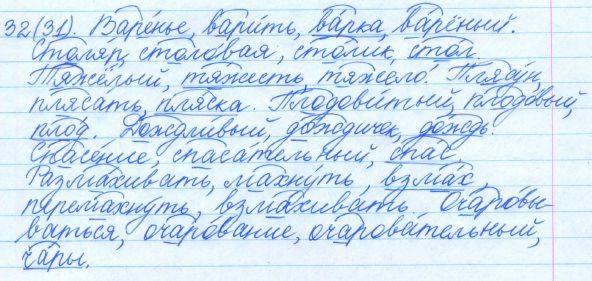 32(31). Варе́нье, вари́ть, ва́рка, ва́рёный.
Столяр, столо́вая, сто́лик, стол.
Тяжёлый, тя́жесть, тяжело́. Плясу́н,
пляса́ть, пля́ска. Плодови́тый, плодо́вый,
плод. Дождли́вый, до́ждичек, до́ждь.
Спасе́ние, спаса́тельный, спас.
Разма́хивать, махну́ть, взмах,
перемахну́ть, взма́хивать. Очаро́вы-
ваться, очарова́ние, очарова́тельный,
ча́ры.